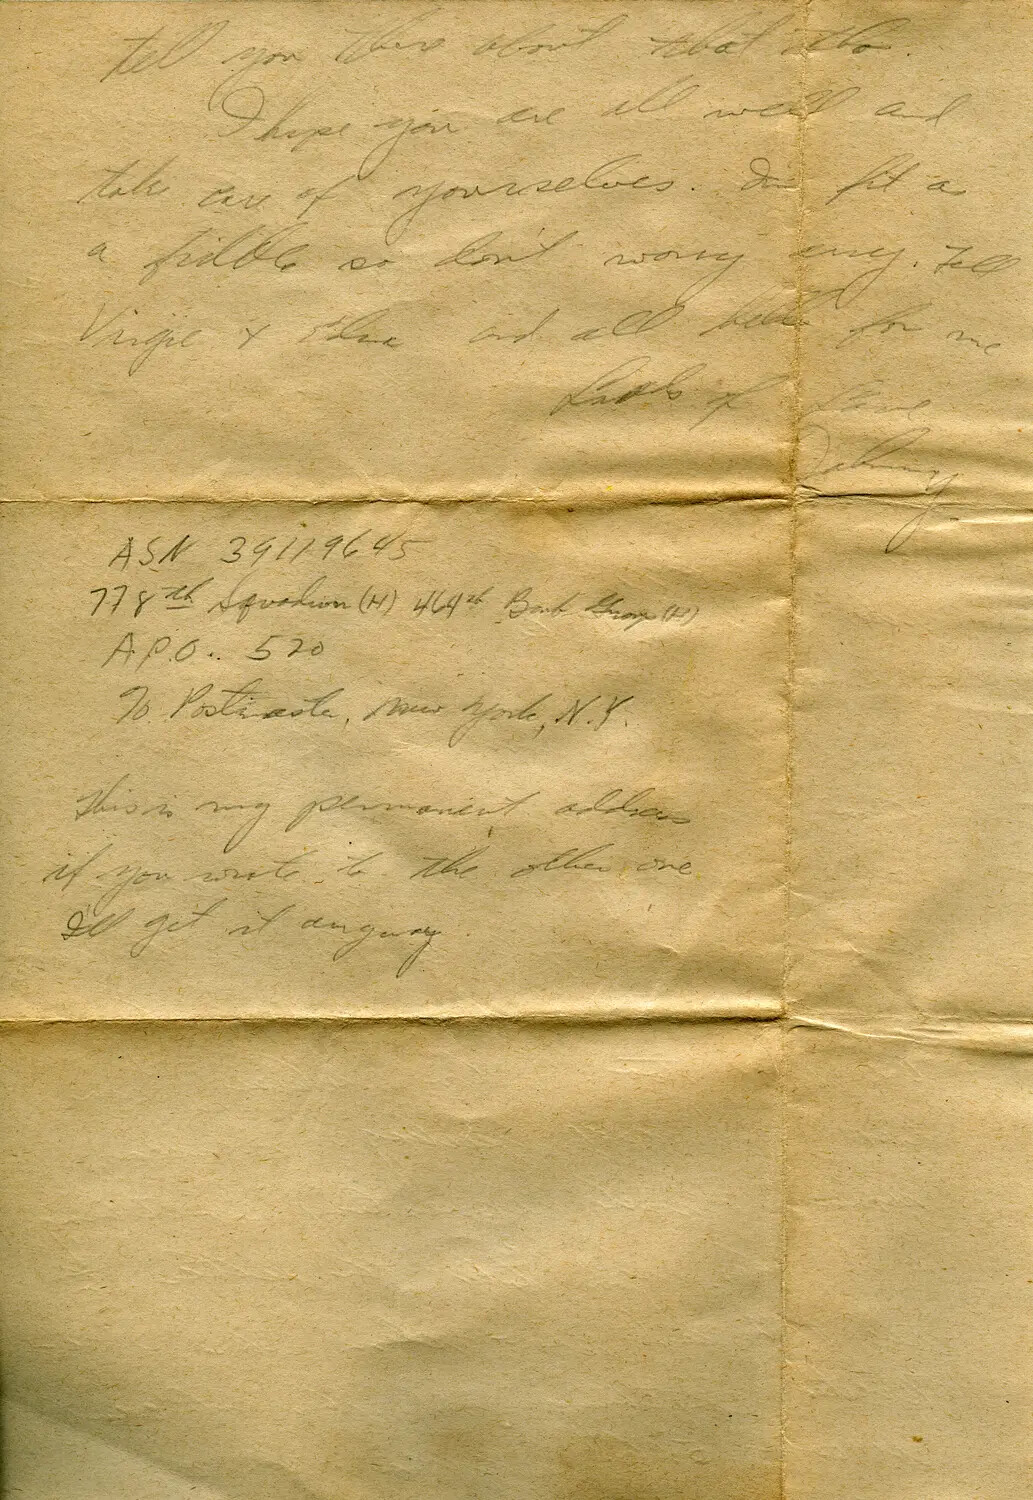 tell you there about that tho.
I hope you are all well and
take care of yourselves. Im fit as
a fiddle so don't worry any. Tell
Virgie & and all hello for me
Loads of Love
Johnny
ASN 39119645
778th Squadron (H) 464th Bomb Group (H)
A.P.O.. 520
% Postmaster, New York, N.Y.
This is my permanent address
if you wrote to the other one
I'll get it anyway.